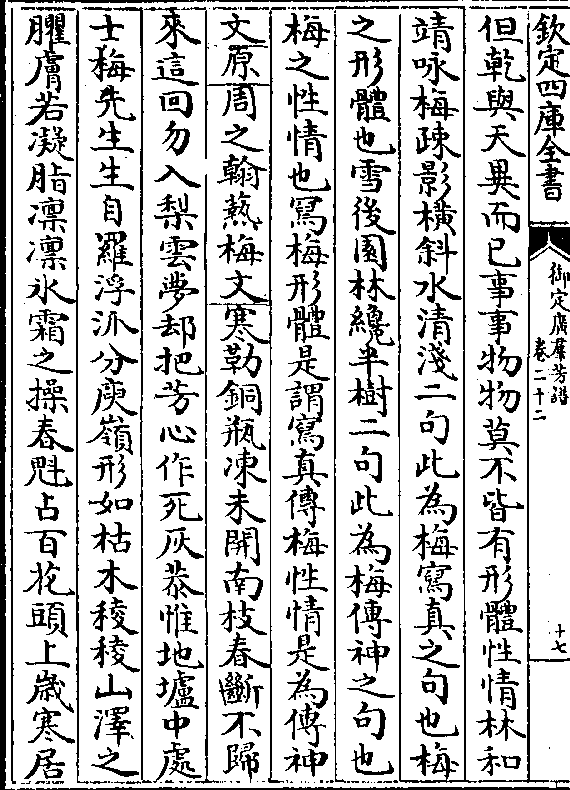 欽定四庫全書
御定廣羣芳譜
卷二十二
十七
但乾與天異而已事事物物莫不皆有形體性情林和
靖咏梅疎影橫斜水清淺二句此為梅寫真之句也梅
之形體也雪後園林纔半樹二句此為梅傳神之句也
梅之性情也寫梅形體是謂寫真傳梅性情是為傳神
文原周之翰爇梅文寒勒銅瓶凍未開南枝春斷不歸
來這回勿入梨雲夢却把芳心作死灰恭惟地壚中處
士梅先生生自羅浮派分庾嶺形如枯木稜稜山澤之
臞膚若凝脂凛凛氷霜之操春魁占百花頭上歲寒居